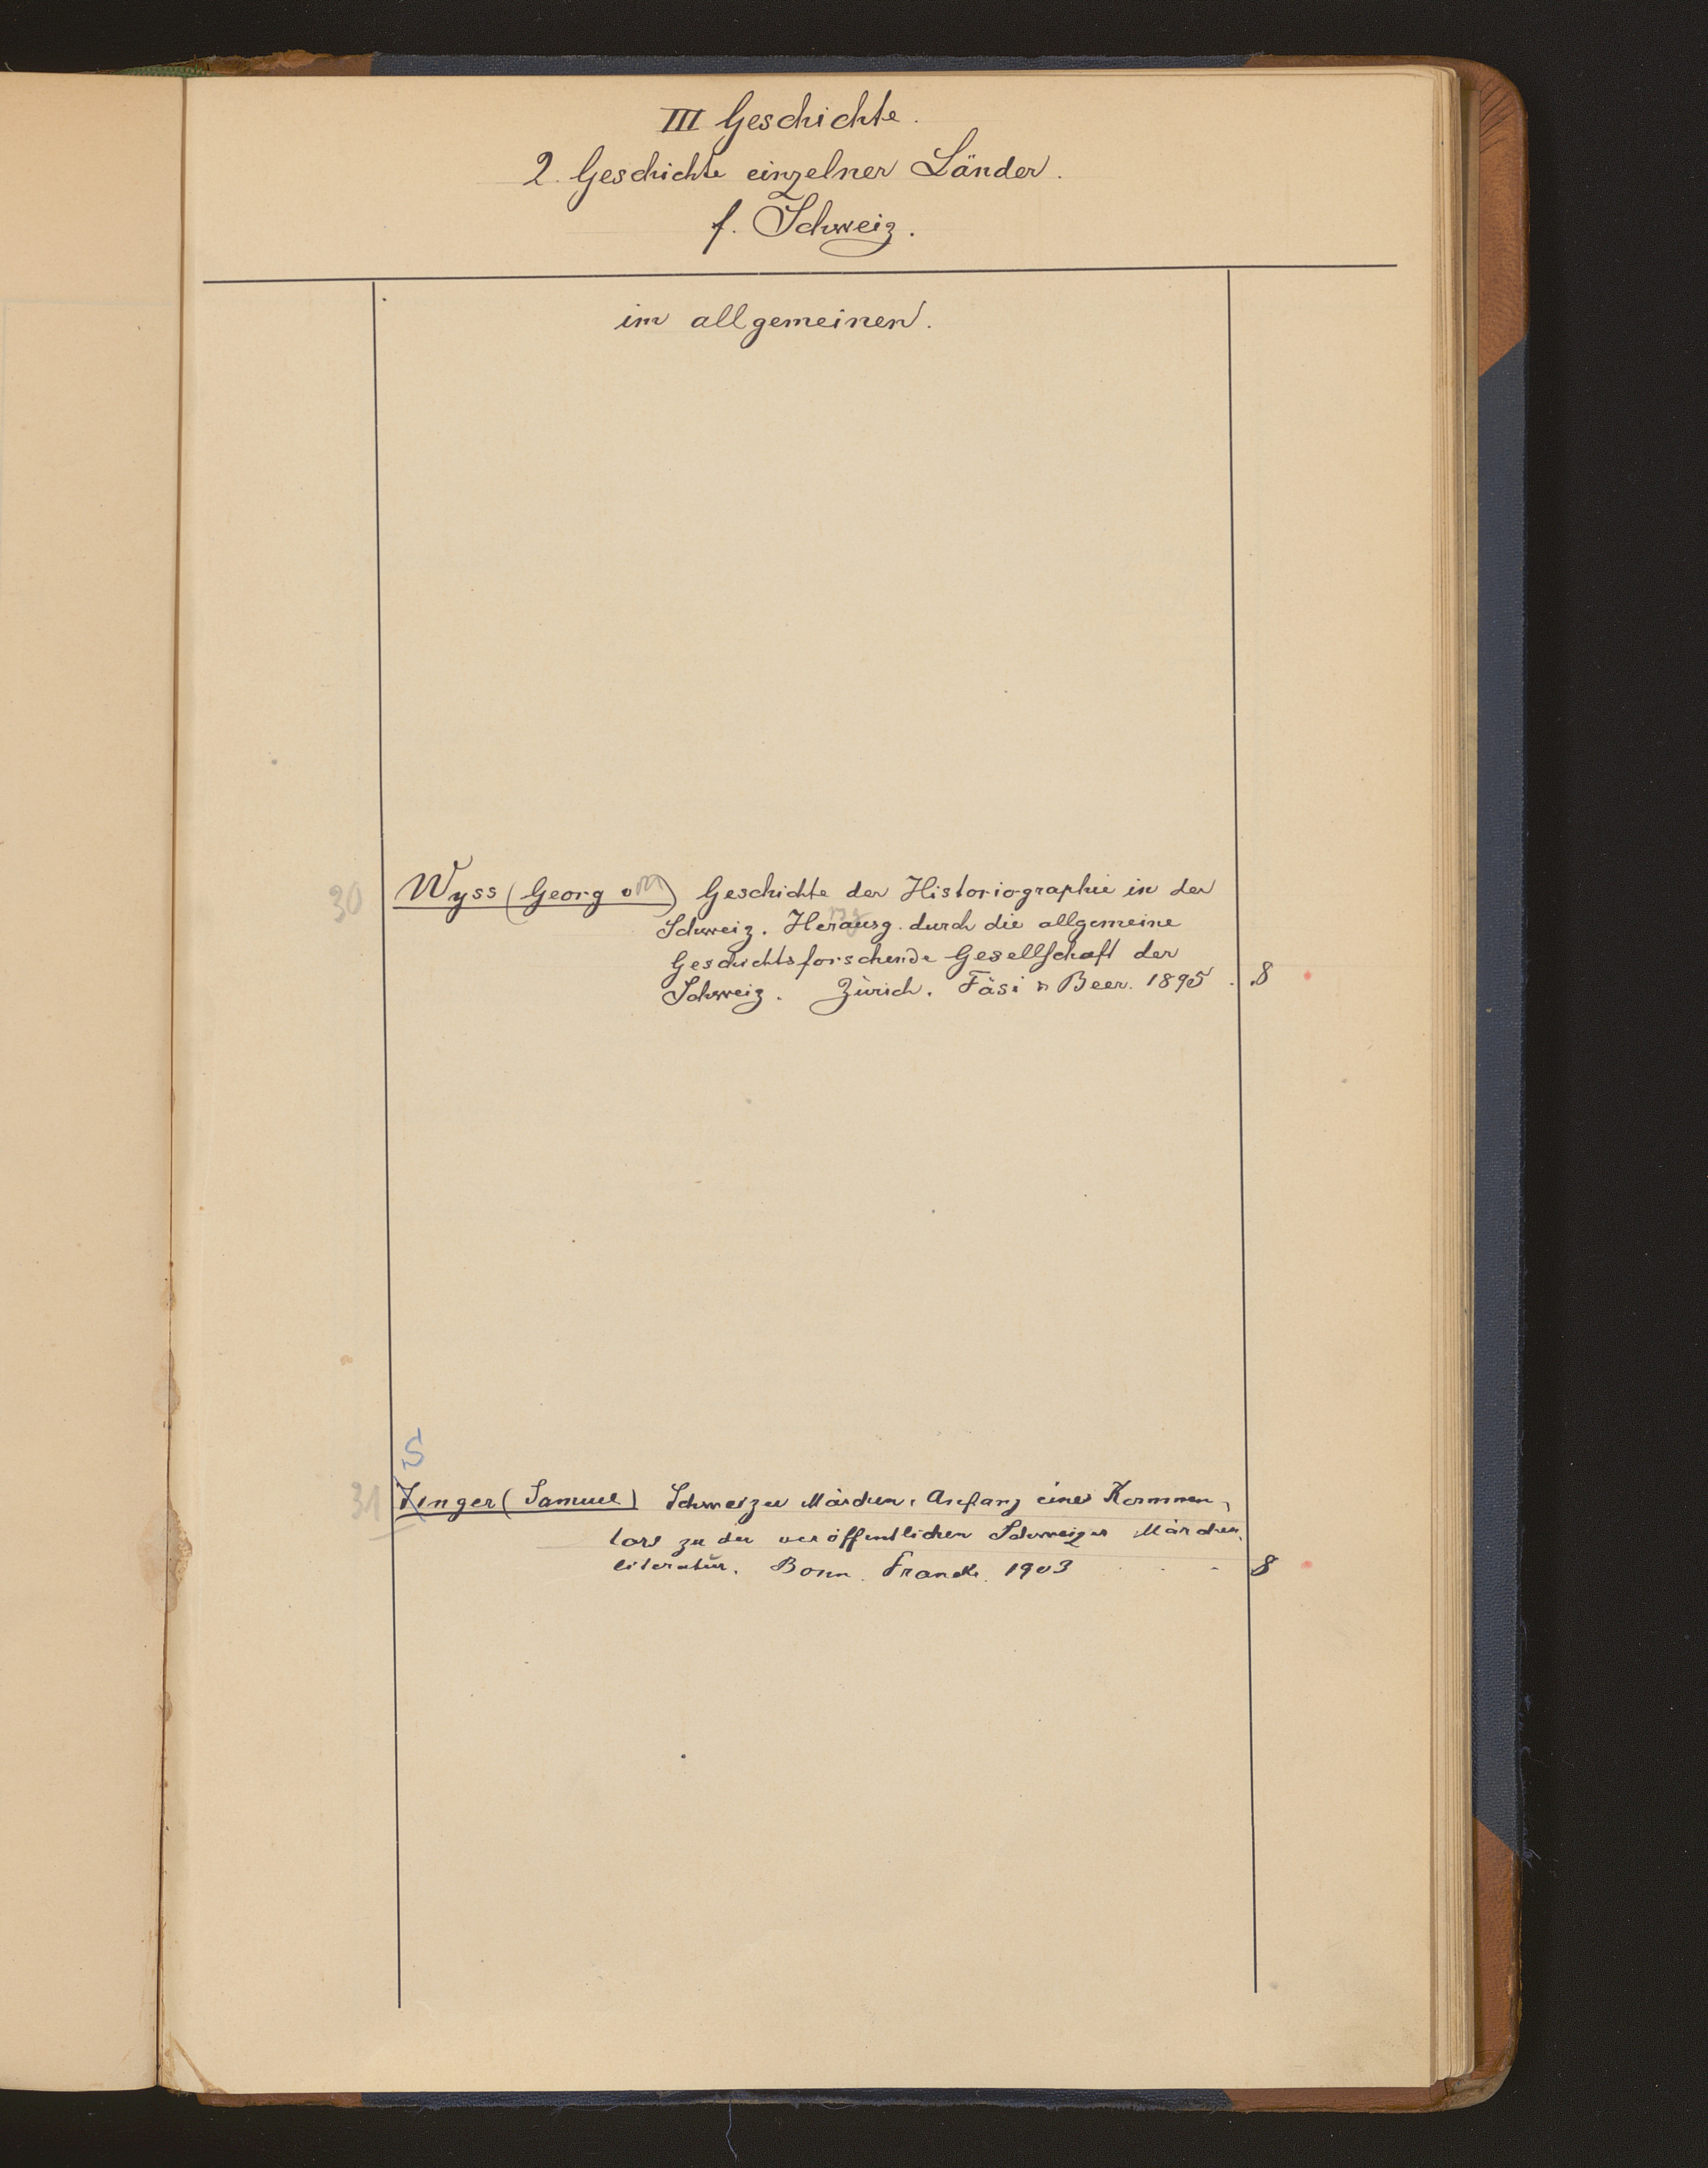 III Geschichte.
2. Geschichte einzelner Länder.
f. Schweiz.
im allgemeinen.
30 Wyss (Georg v) Geschichte der Historiographie in der
Schweiz. Herausg. durch die allgemeine
Geschichtsforschende Gesellschaft der
Schweiz. Zürich. Fäsi & Beer. 1895 . 8
S
31 Zinger (Samuel) Schweizer Märchen, Anfang eines Kommen-
tars zu der veröffentlichen Schweizer Märchen-
literatur. Bonn. Francke. 1903 . . 8